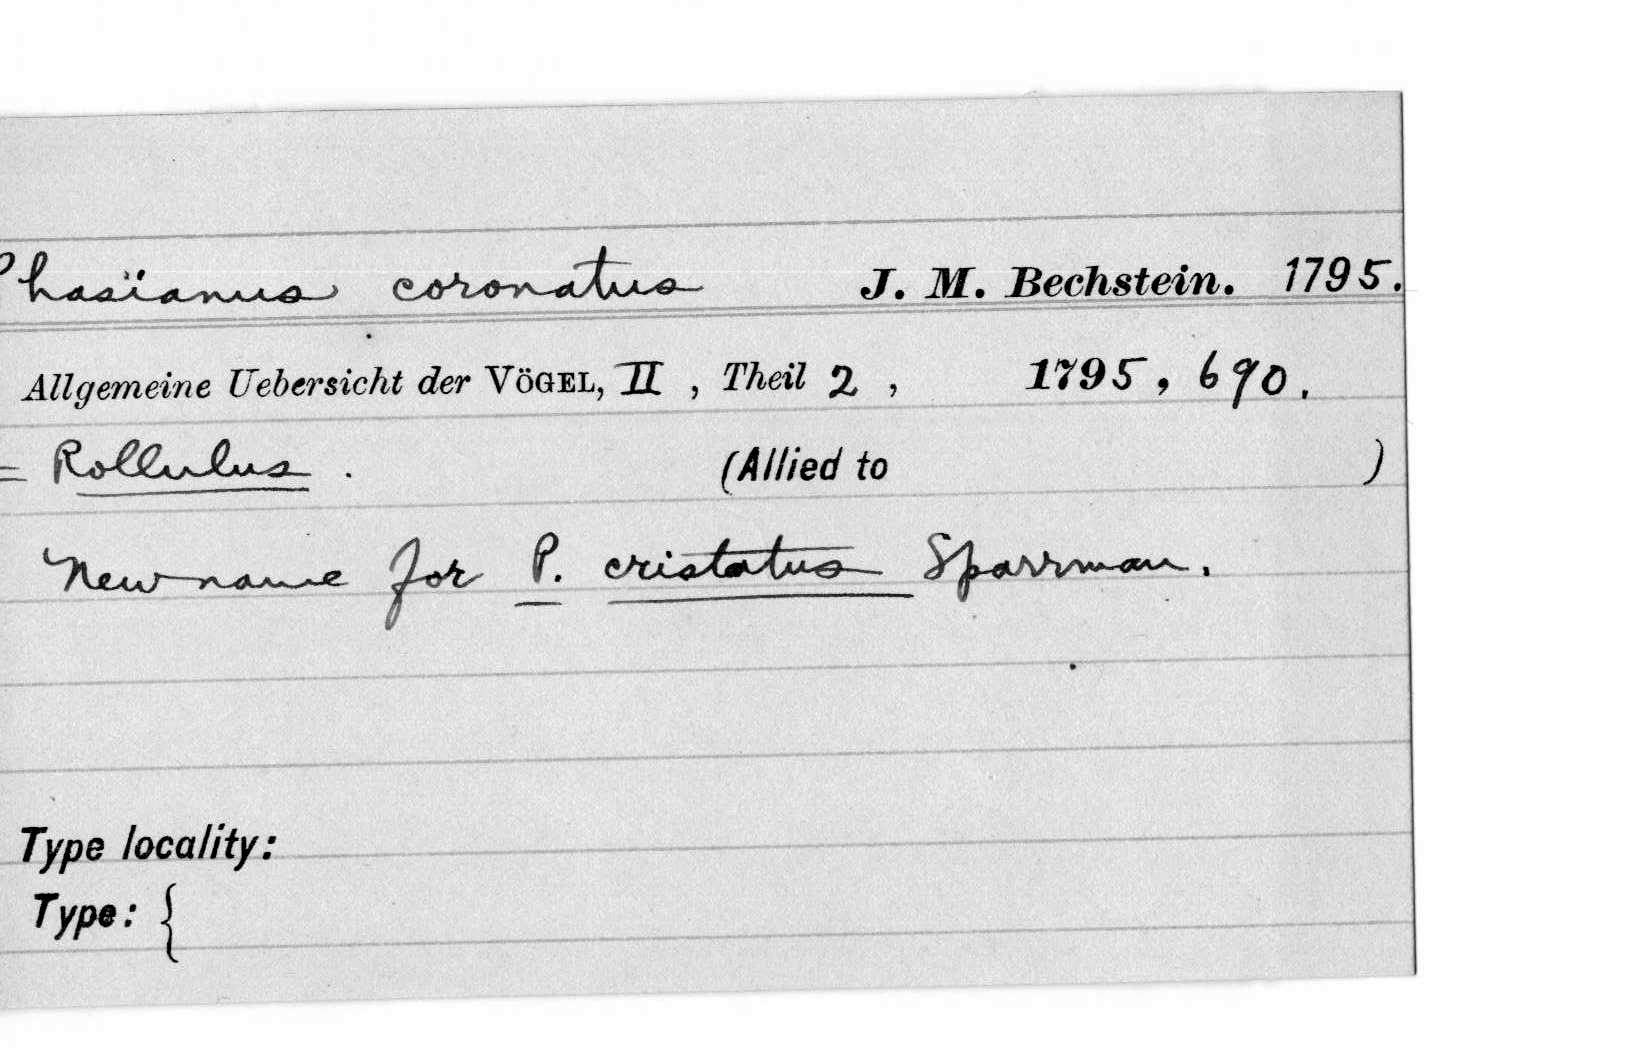 Phasïanus coronatus J. M. Bechstein. 1795.
Allgemeine Uebersicht der VÖGEL, II , Theil 2 , 1795, 690.
= Rollulus . (Allied to )
New name for P. cristatus Sparrman.
Type locality:
Type: {